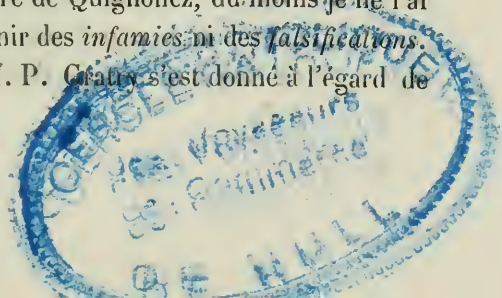 re de Quignonez, du moins je ne l'ai
nir des infamies ni des falsifications.
. P. Gratry s'est donné à l'égard de
CERCLE
des Voyageurs
de Commerce
DE HULL